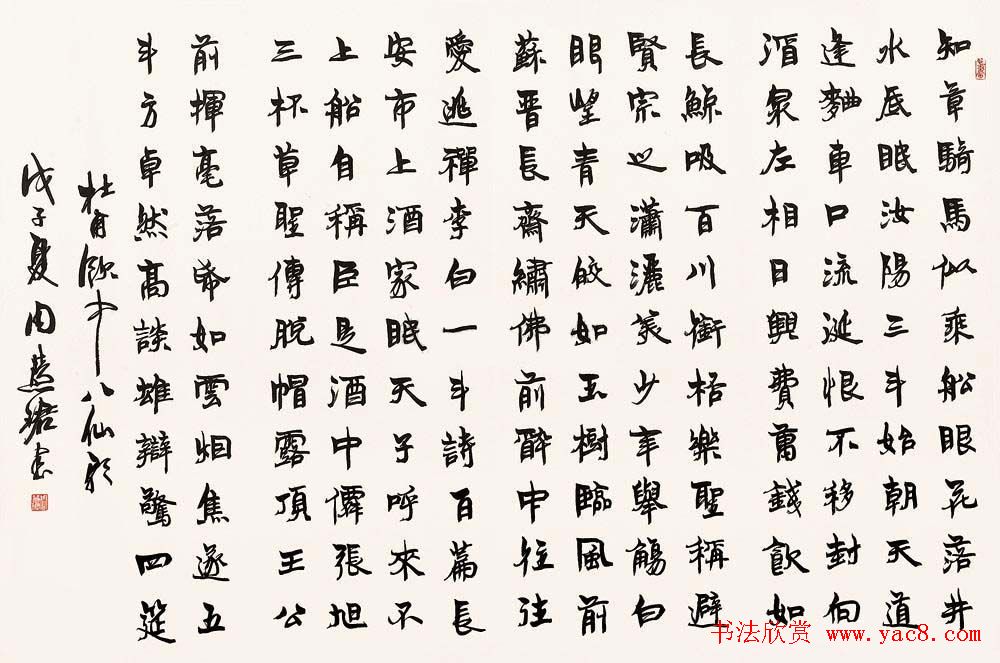 知章騎馬似乘船眼花落井
水底眠汝陽三斗始朝天道
逢麴車口流涎恨不移封向
酒泉左相日興費萬錢飲如
長鯨吸百川銜桮樂聖稱避
賢宗之瀟灑美少年舉觴白
眼望青天皎如玉樹臨風前
蘇晉長齋繡佛前醉中往往
愛逃禪李白一斗詩百篇長
安市上酒家眠天子呼來不
上船自稱臣是酒中僊張旭
三杯草聖傳脫帽露頂王公
前揮毫落紙如雲烟焦遂五
斗方卓然高談雄辯驚四筵
杜甫飲中八仙歌
戊子夏周慧珺書
书法欣赏 www.yac8.com